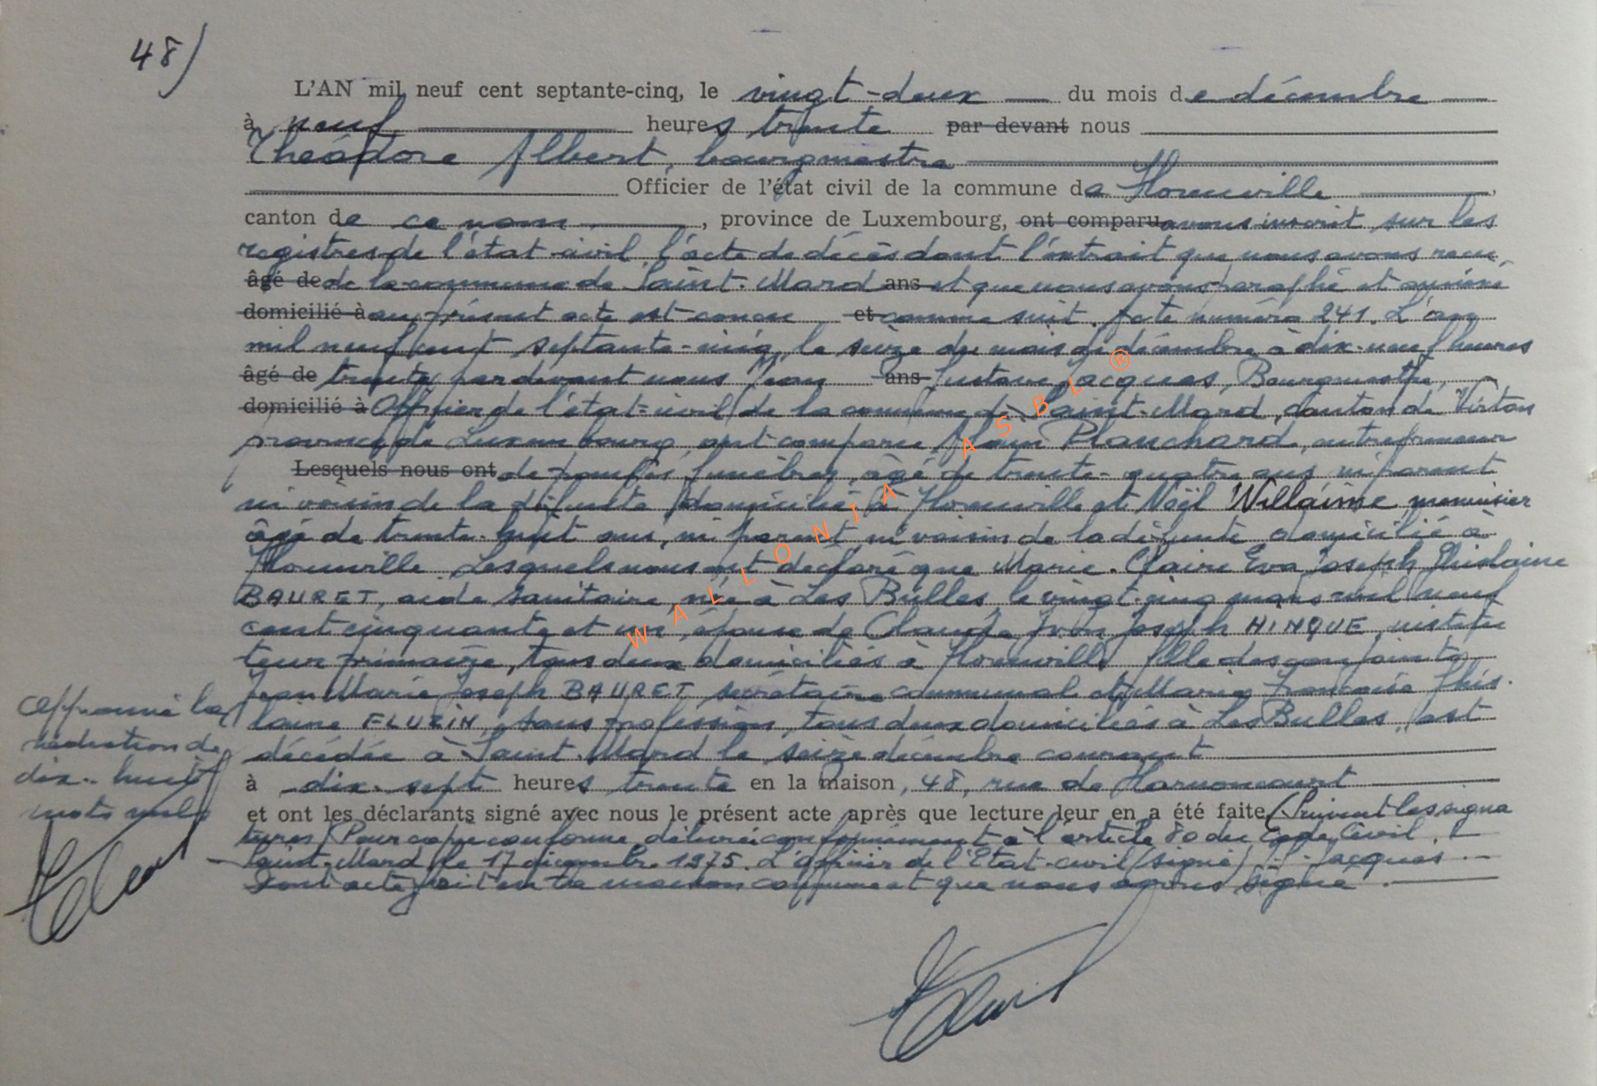 48)
L'AN mil neuf cent septante-cinq, le vingt-deux du mois de décembre
à neuf heures trente par devant nous
Théodore Albert, bourgmestre
Officier de l'état civil de la commune de Florenville,
canton de ce nom, province de Luxembourg, ont comparu avons inscrit sur les
registres de l'état-civil, l'acte de décès dont l'extrait que nous avons reçu
âgé de de la commune de Saint-Mard ans et que nous avons paraphé et annexé
domicilié à au présent acte est conçu et comme suit. Acte numéro 241. L'an
mil neuf cent septante-cinq, le seize du mois de décembre à dix-neuf heures
âgé de trente, par devant nous Jean ans Gustave Jacques, Bourgmestre,
domicilié à Officier de l'état-civil de la commune de Saint-Mard, canton de Virton
province de Luxembourg, ont comparu Alain Planchard, entrepreneur
Lesquels nous ont de pompes funèbres, âgé de trente-quatre ans, ni parent
ni voisin de la défunte, domicilié à Florenville et Noël Willaime menuisier
âgé de trente-huit ans, ni parent ni voisin de la défunte domicilié à
Florenville. Lesquels nous ont déclaré que Marie-Claire Eva Joseph Ghislaine
BAURET, aide sanitaire, née à Les Bulles le vingt-cinq mars mil neuf
cent cinquante et un, épouse de Claude Joseph HINQUE, institu
teur primaire, tous deux domiciliés à Florenville, fille des conjoints
Jean Marie Joseph BAURET, secrétaire communal et Marie Françoise Ghis-
laine FLUZIN, sans profession, tous deux domiciliés à Les Bulles, est
décédée à Saint-Mard le seize décembre courant
à dix-sept heures trente en la maison, 48, rue de Harnoncourt
et ont les déclarants signé avec nous le présent acte après que lecture leur en a été faite (Suivent les signa
tures) Pour copie conforme délivrée conformément à l'article 80 du Code Civil.
Saint-Mard, le 17 décembre 1975. L'officier de l'Etat-civil (signé) J. G. Jacques
Dont acte fait en la maison commune et que nous avons signé.
Approuvé la
radiation de
dix-huit
mots nuls
WALLONIA ASBL ®